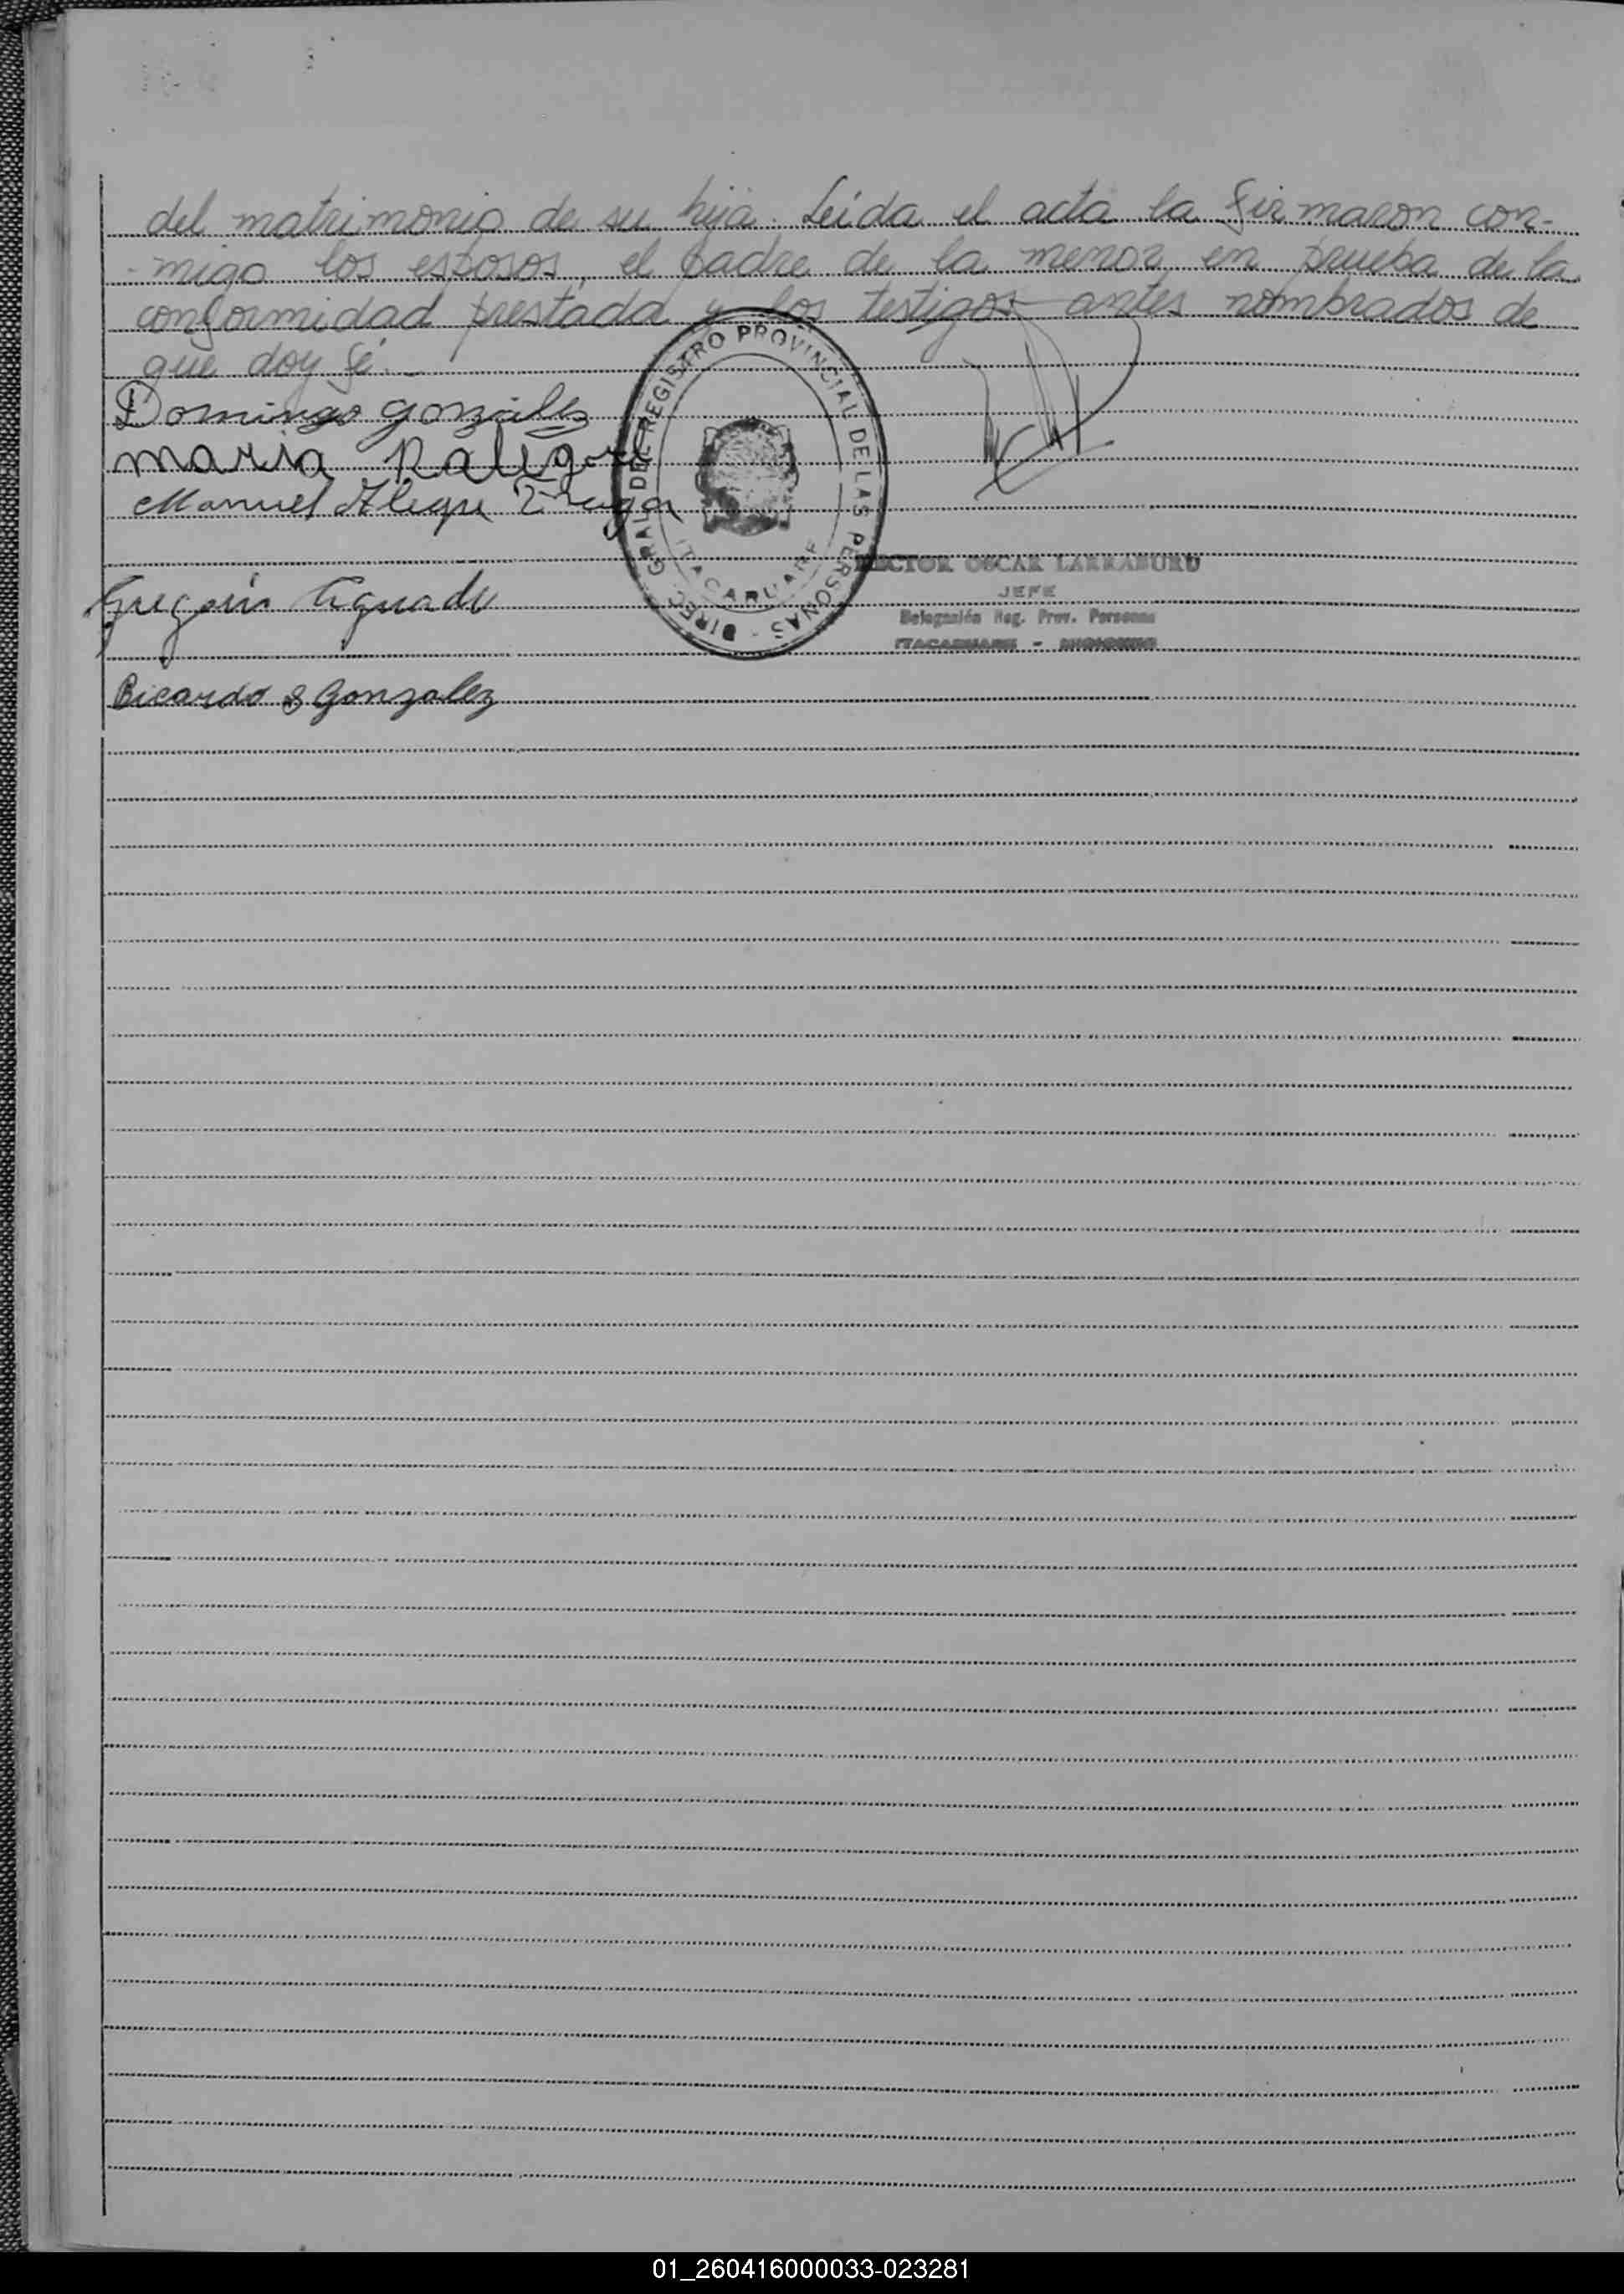 del matrimonio de su hija. Leida el acta la firmaron con-
-migo los esposos, el padre de la menor, en prueba de la
conformidad prestada y los testigos antes nombrados de
que doy fé.-
Domingo gonzález
maria
Manuel Alegre
DIREC. GRAL. DEL REGISTRO PROVINCIAL DE LAS PERSONAS
ITACARUARE
HECTOR OSCAR LARRABURU
JEFE
Delegación Reg. Prov. Personas
ITACARUARE - MISIONES
Aguado
Ricardo S Gonzalez
01_260416000033-023281